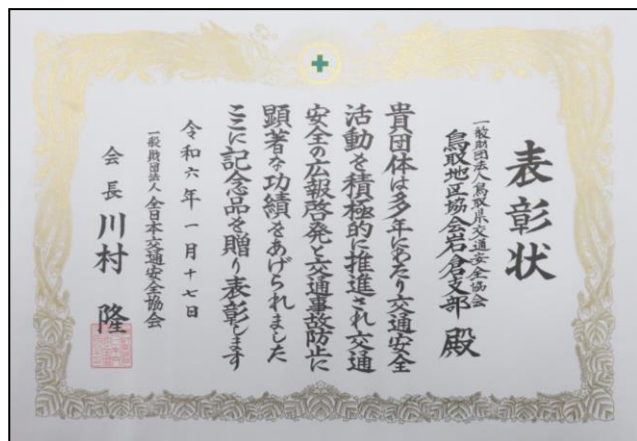 表彰状
一般財団法人鳥取県交通安全協会
鳥取地区協会岩倉支部 殿
貴団体は多年にわたり交通安全
活動を積極的に推進され交通
安全の広報啓発と交通事故防止に
顕著な功績をあげられました
ここに記念品を贈り表彰します
令和六年一月十七日
一般財団法人 全日本交通安全協会
会長 川村 隆